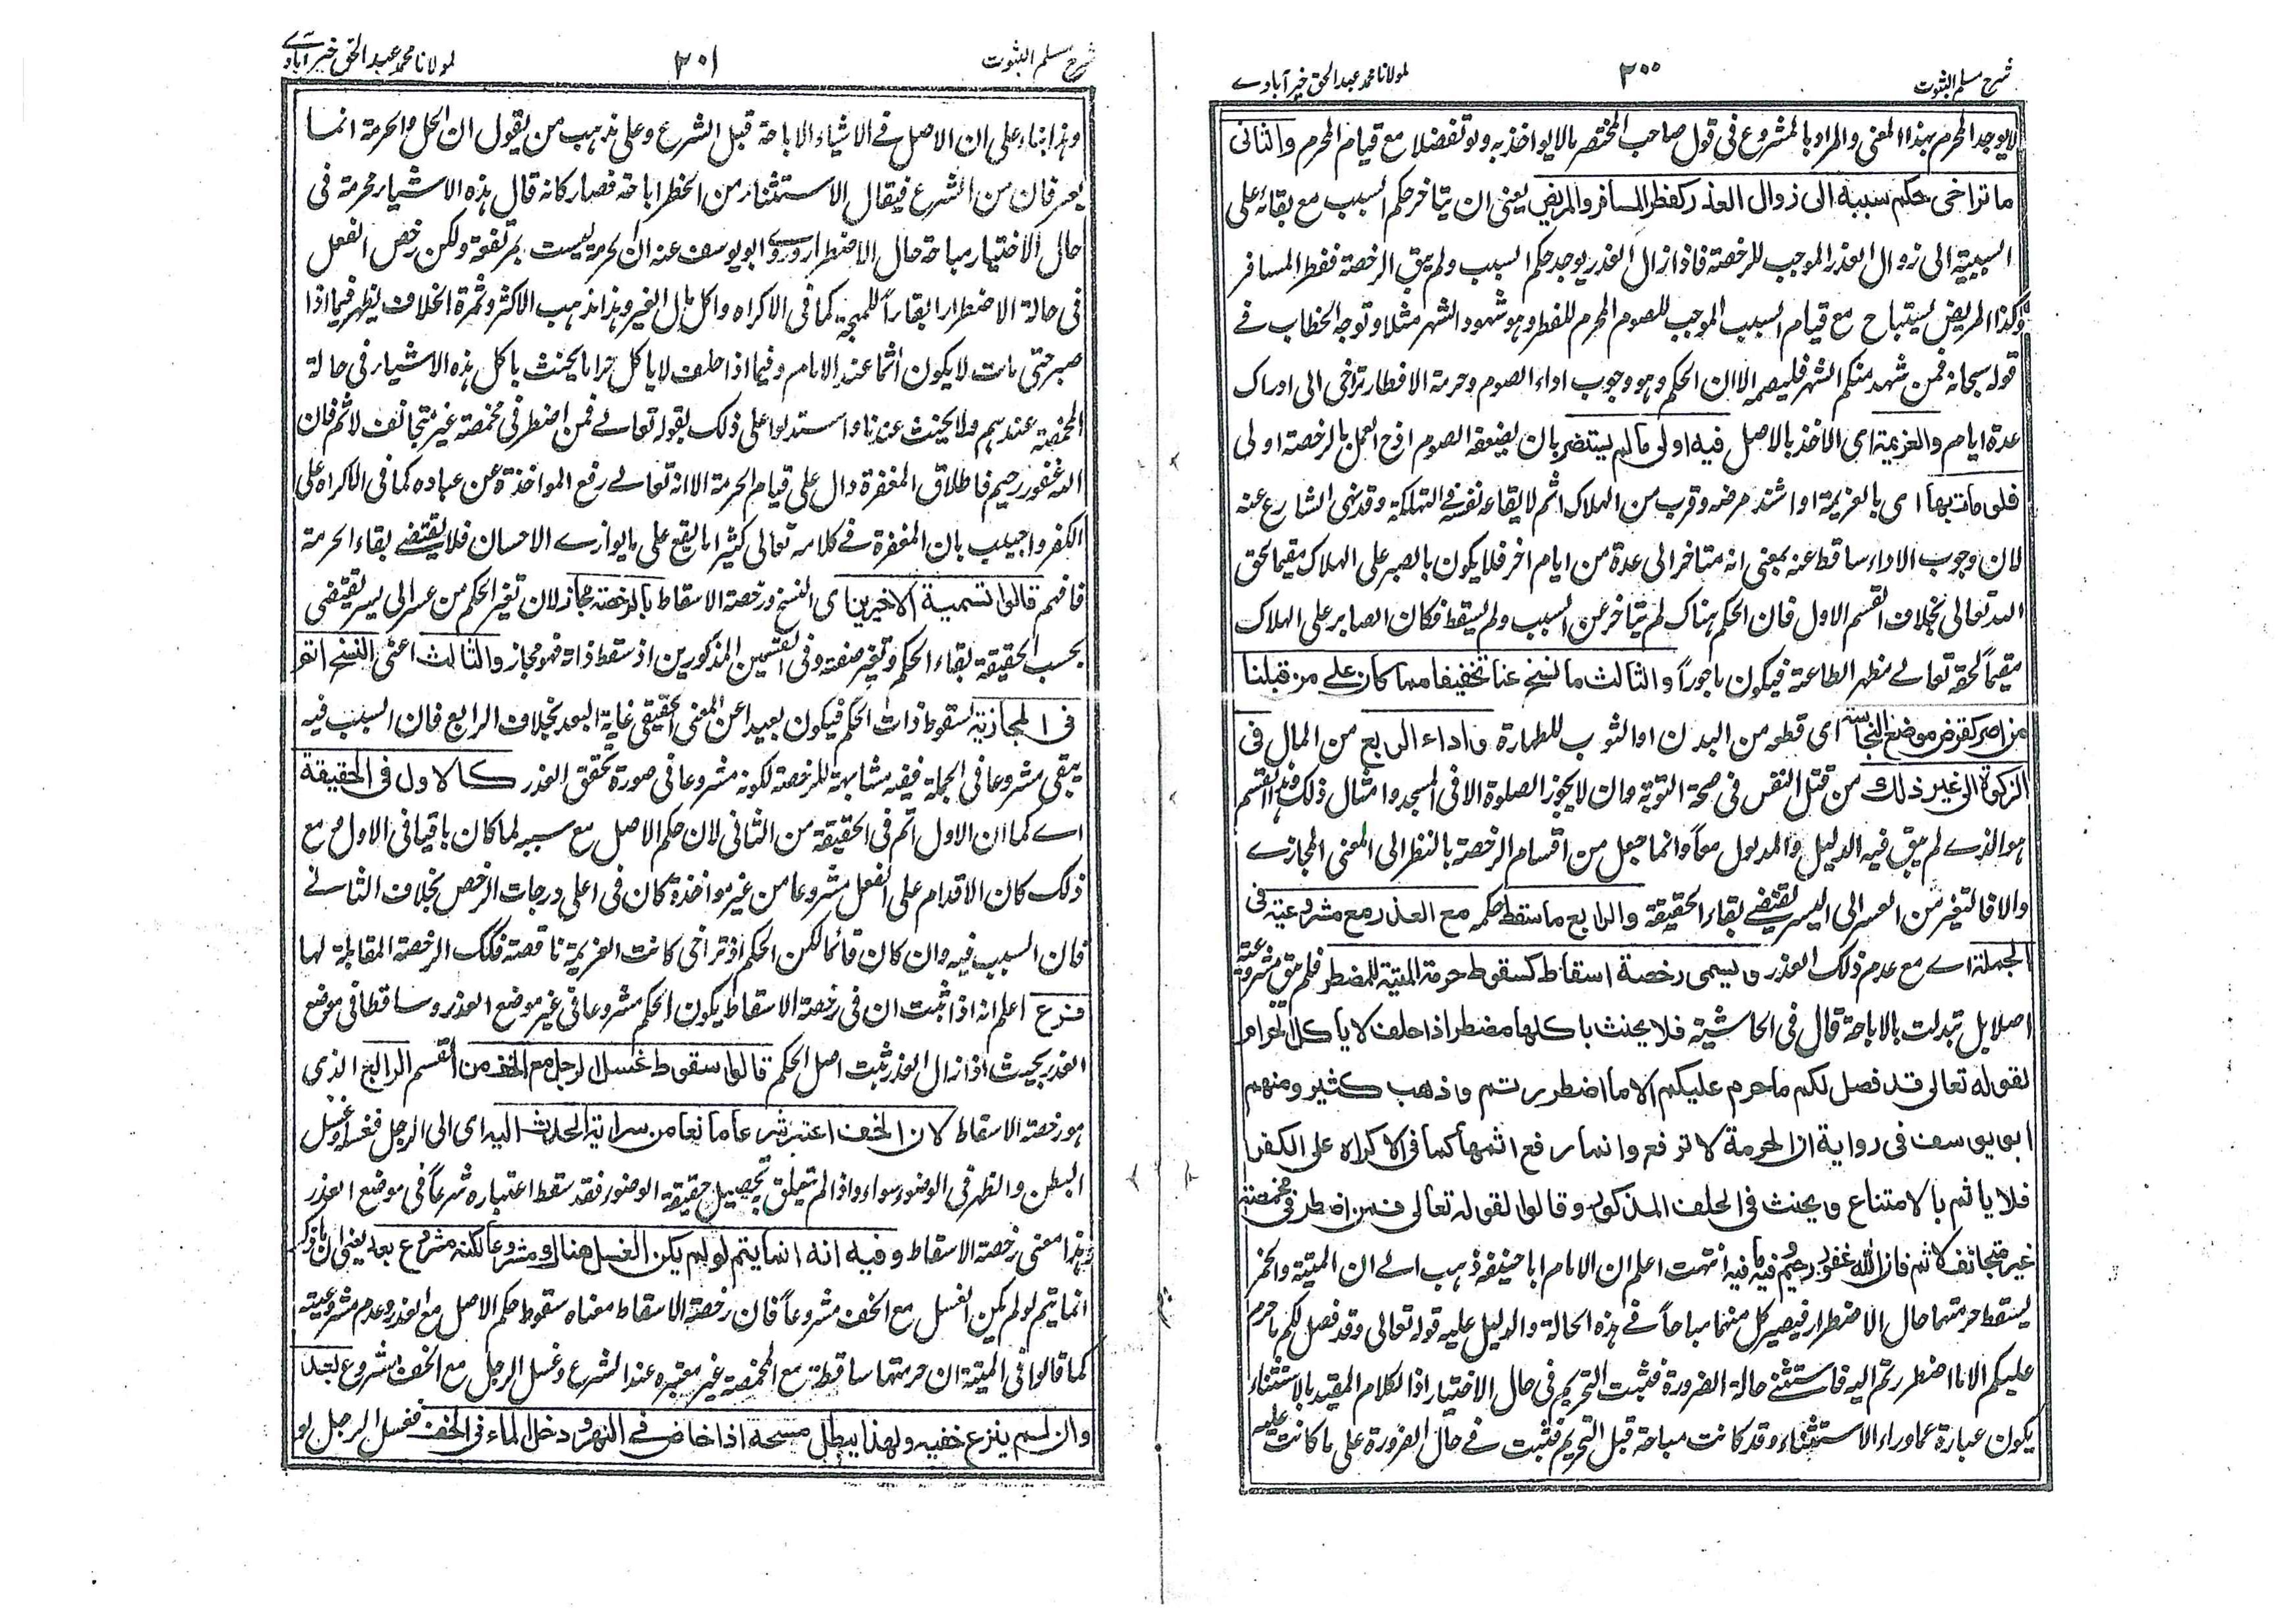 شرح مسلم الثبوت
٢٠٠
لمولانا محمد عبد الحق خير آبادے
لا يوجد المحرم بهذا المعنى والمراد بالمشروع فى قول صاحب المختصر ما لا يواخذ به ولو تفضلا مع قيام المحرم والثانى
ما تراخى حكم سببه الى زوال العذر كفطر المسافر والمريض يعنى ان يتاخر حكم السبب مع بقائه على
السببية الى زوال العذر الموجب للرخصة فاذا زال العذر يوجد حكم السبب ولم يبق الرخصة ففطر المسافر
وكذا المريض يستباح مع قيام السبب الموجب للصوم المحرم للفطر وهو شهود الشهر مثلا وتوجه الخطاب فے
قوله سبحانه فمن شهد منكم الشهر فليصمه الا ان الحكم وهو وجوب اداء الصوم وحرمة الافطار تراخى الى ادراك
عدة ايام والعزيمة اى الاخذ بالاصل فيه اولى ما لم يستضر بان يضعفه الصوم اذ ح العمل بالرخصة اولى
فلو مات بها اى بالعزيمة او اشتد مرضه وقرب من الهلاك اثم لايقاعه نفسه فے التهلكة وقد نهى الشارع عنه
لان وجوب الاداء ساقط عنه بمعنى انه متاخر الى عدة من ايام اخر فلا يكون بالصبر على الهلاك مقيما لحق
الله تعالى بخلاف القسم الاول فان الحكم هناك لم يتاخر عن السبب ولم يسقط فكان الصابر على الهلاك
مقيماً لحقه تعالے مظهر الطاعة فيكون ماجوراً والثالث ما نسخ عنا تخفيفا مما كان على من قبلنا
من اصر كقرض موضع النجاسة اى قطعه من البدن او الثوب للطهارة واداء الربع من المال فى
الزكوة الى غير ذلك من قتل النفس فى صحة التوبة وان لا يجوز الصلوة الا فى المسجد وامثال ذلك وهذا القسم
هو الذے لم يبق فيه الدليل والمدلول معاً وانما جعل من اقسام الرخصة بالنظر الى المعنى المجازے
والا فالتغير من العسر الى اليسر يقتضے بقاء الحقيقة والرابع ما سقط حكمه مع العذر مع مشروعيته فى
الجملة اے مع عدم ذلك العذر ويسمى رخصة اسقاط كسقوط حرمة الميتة للمضطر فلم يبق مشروعيته
اصلا بل تبدلت بالاباحة قال فى الحاشية فلا يحنث باكلها مضطر اذا حلف لا ياكل الحرام
لقوله تعالى قد فصل لكم ما حرم عليكم الا ما اضطررتم وذهب كثير ومنهم
ابو يوسف فى رواية ان الحرمة لا ترفع وانما رفع اثمها كما فى الاكراه على الكفر
فلا ياثم بالامتناع ويحنث فى الحلف المذكور وقالوا لقوله تعالى فمن اضطر فى مخمصة
غير متجانف لاثم فان الله غفور رحيم وفيه ما فيه انتهت اعلم ان الامام ابا حنيفة ذهب الے ان الميتة والخمر
يسقط حرمتهما حال الاضطرار فيصير كل منهما مباحاً فے هذه الحالة والدليل عليه قوله تعالى وقد فصل لكم ما حرم
عليكم الا ما اضطررتم اليه فاستثنے حالة الضرورة فثبت التحريم فى حال الاختيار اذ الكلام المقيد بالاستثناء
يكون عبارة عما وراء الاستثناء وقد كانت مباحة قبل التحريم فثبت فے حال الضرورة على ما كانت عليه
شرح مسلم الثبوت
٢٠١
لمولانا محمد عبد الحق خير آبادے
وهذا بناء على ان الاصل فے الاشياء الاباحة قبل الشرع وعلى مذهب من يقول ان الحل والحرمة انما
يعرفان من الشرع فيقال الاستثناء من الحظر اباحة فصار كانه قال هذه الاشياء محرمة فى
حال الاختيار مباحة حال الاضطرار وروے ابو يوسف عنه ان الحرمة ليست بمرتفعة ولكن رخص الفعل
فى حالة الاضطرار ابقاءً للمهجة كما فى الاكراه واكل مال الغير وهذا مذهب الاكثر وثمرة الخلاف يظهر فيما اذا
صبر حتى مات لا يكون آثما عند الامام وفيما اذا حلف لا ياكل حراما يحنث باكل هذه الاشياء فى حالة
المخمصة عندهم ولا يحنث عندنا واستدلوا على ذلك بقوله تعالے فمن اضطر فى مخمصة غير متجانف لاثم فان
الله غفور رحيم فاطلاق المغفرة دال على قيام الحرمة الا انه تعالے رفع المواخذة عن عباده كما فى الاكراه على
الكفر واجيب بان المغفرة فے كلامه تعالى كثيرا ما يقع على ما يوازے الاحسان فلا يقتضے بقاء الحرمة
فافهم قالوا تسمية الاخيرين اى النسخ ورخصة الاسقاط بالرخصة مجاز لان تغير الحكم من عسر الى يسر يقتضى
بحسب الحقيقة بقاء الحكم وتغير صفته وفى القسمين المذكورين اذ سقط ذاته فهو مجاز والثالث اعنى النسخ اتم
فى المجازية لسقوط ذات الحكم فيكون بعيدا عن المعنى الحقيقى غاية البعد بخلاف الرابع فان السبب فيه
يبقى مشروعا فى الجملة ففيه مشابهة للرخصة لكونه مشروعا فى صورة تحقق العذر كالاول فى الحقيقة
اے كما ان الاول اتم فى الحقيقة من الثانى لان حكم الاصل مع سببه لما كان باقيا فى الاول مع
ذلك كان الاقدام على الفعل مشروعا من غير مواخذة كان فى اعلى درجات الرخص بخلاف الثانے
فان السبب فيه وان كان قائما لكن الحكم اذ تراخى كانت العزيمة ناقصة فكك الرخصة المقابلة لها
فرع اعلم انه اذا ثبت ان فى رخصة الاسقاط يكون الحكم مشروعا فى غير موضع العذر وساقطا فى موضع
العذر بحيث اذا زال العذر ثبت اصل الحكم قالوا سقوط غسل الرجل مع الخف من القسم الرابع الذى
هو رخصة الاسقاط لان الخف اعتبر شرعا مانعا من سراية الحدث اليه اى الى الرجل فغسل
البطن والظهر فى الوضوء سواء واذا لم يتعلق به تحصيل حقيقة الوضوء فقد سقط اعتباره شرعاً فى موضع العذر
وهذا معنى رخصة الاسقاط وفيه انه انما يتم لو لم يكن الغسل هناك مشروعا لكنه مشروع بعد يعنى ان ما ذكر
انما يتم لو لم يكن الغسل مع الخف مشروعاً فان رخصة الاسقاط معناه سقوط حكم الاصل مع العذر وعدم مشروعيته
كما قالوا فى الميتة ان حرمتها ساقطة مع المخمصة غير معتبره عند الشرع وغسل الرجل مع الخف مشروع بعد
وان لم ينزع خفيه ولهذا يبطل مسحه اذا خاض فے النهر ودخل الماء فى الخف فغسل الرجل لو